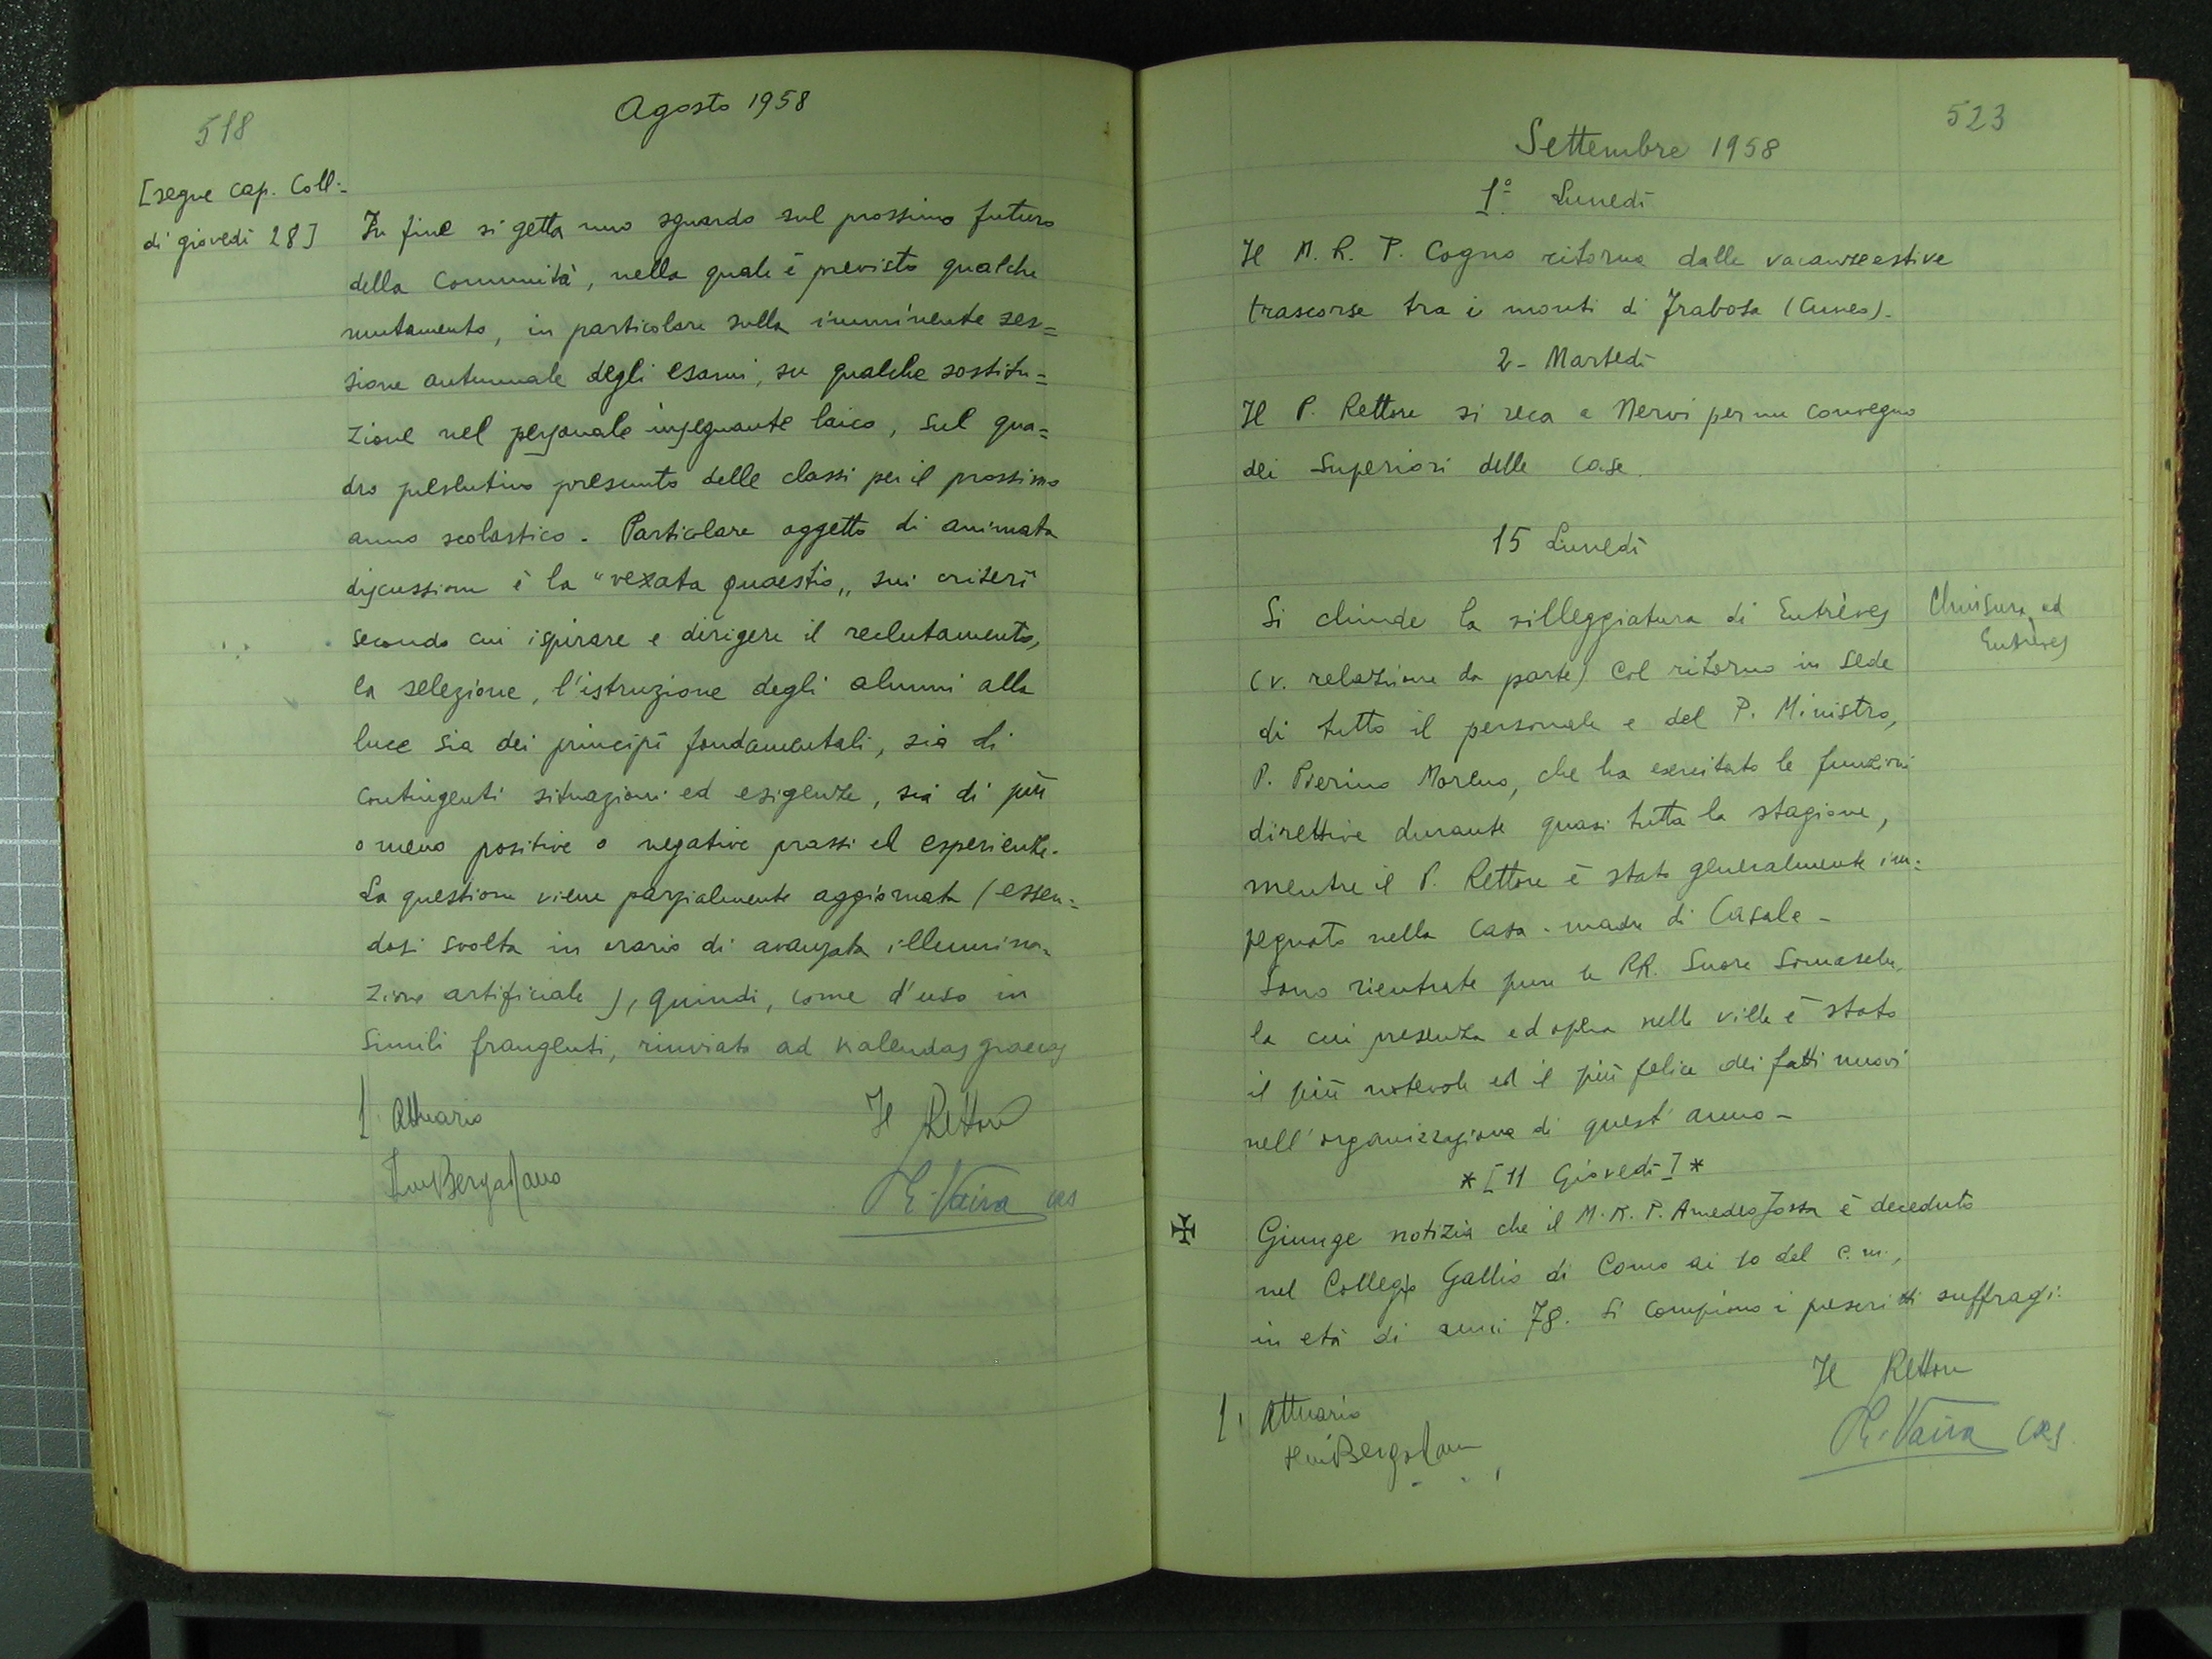 518
Agosto 1958
[segue cap. Coll.
di giovedì 28]
In fine si getta uno sguardo sul prossimo futuro
della Comunità, nella quale è previsto qualche
mutamento, in particolare sulla imminente ses=
sione autunnale degli esami, su qualche sostitu=
zione nel personale insegnante laico, sul qua=
dro presunto delle classi per il prossimo
anno scolastico. Particolare oggetto di animata
discussione è la "vexata quaestio„ sui criterî
secondo cui ispirare e dirigere il reclutamento,
la selezione, l'istruzione degli alunni alla
luce sia dei principî fondamentali, sia di
contingenti situazioni ed esigenze, sia di più
o meno positive o negative prassi ed esperienze.
La questione viene parzialmente aggiornata (essen=
dosi svolta in orario di avanzata illumina=
zione artificiale), quindi, come d'uso in
simili frangenti, rinviata ad Kalendas graecas
l' Attuario
Il Rettore
P. E. Vaira crs
523
Settembre 1958
1º Lunedì
Il M. R. P. Cogno ritorna dalle vacanze estive
trascorse tra i monti di Frabosa (Cuneo).
2 - Martedì
Il P. Rettore si reca a Nervi per un convegno
dei Superiori delle case.
15 Lunedì
Si chiude la villeggiatura di Entrèves
(v. relazione da parte) col ritorno in sede
di tutto il personale e del P. Ministro,
P. Pierino Moreno, che ha esercitato le funzioni
direttive durante quasi tutta la stagione,
mentre il P. Rettore è stato generalmente im=
pegnato nella Casa-madre di Casale -
Sono rientrate pure le RR. Suore Somasche,
la cui presenza ed opera nelle ville è stato
il più notevole ed il più felice dei fatti nuovi
nell'organizzazione di quest'anno -
Chiusura ad
Entrèves
* [11 Giovedì] *
✠ Giunge notizia che il M. R. P. Amedeo Jossa è deceduto
nel Collegio Gallio di Como ai 10 del c. m.,
in età di anni 78. Si compiono i prescritti suffragi.
Il Rettore
l' Attuario
P. E. Vaira crs.